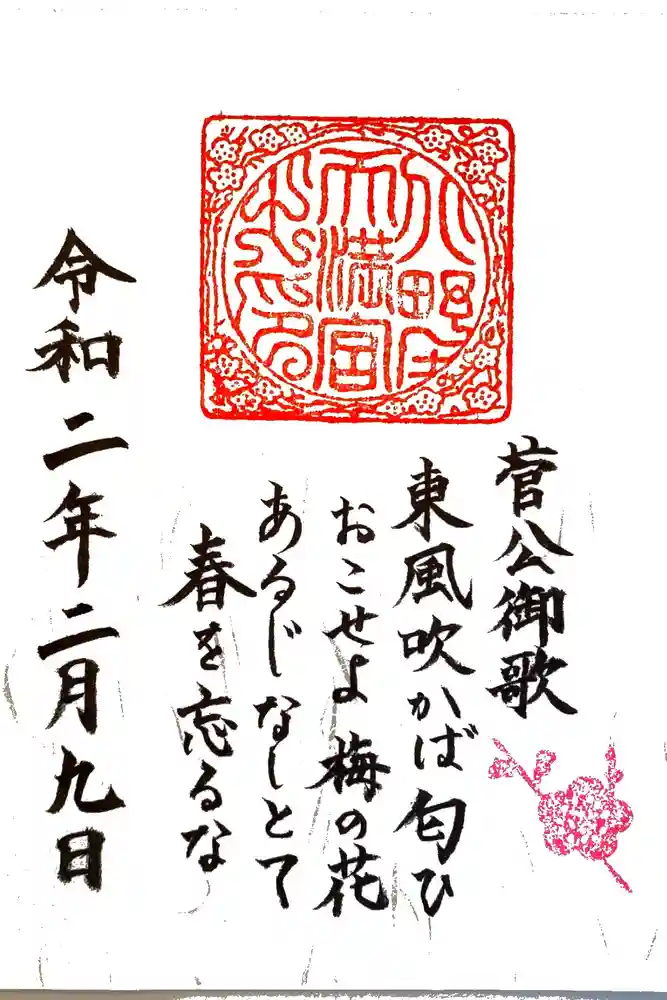 天満宮
菅公御歌
東風吹かば匂ひ
おこせよ梅の花
あるじなしとて
春を忘るな
令和二年二月九日